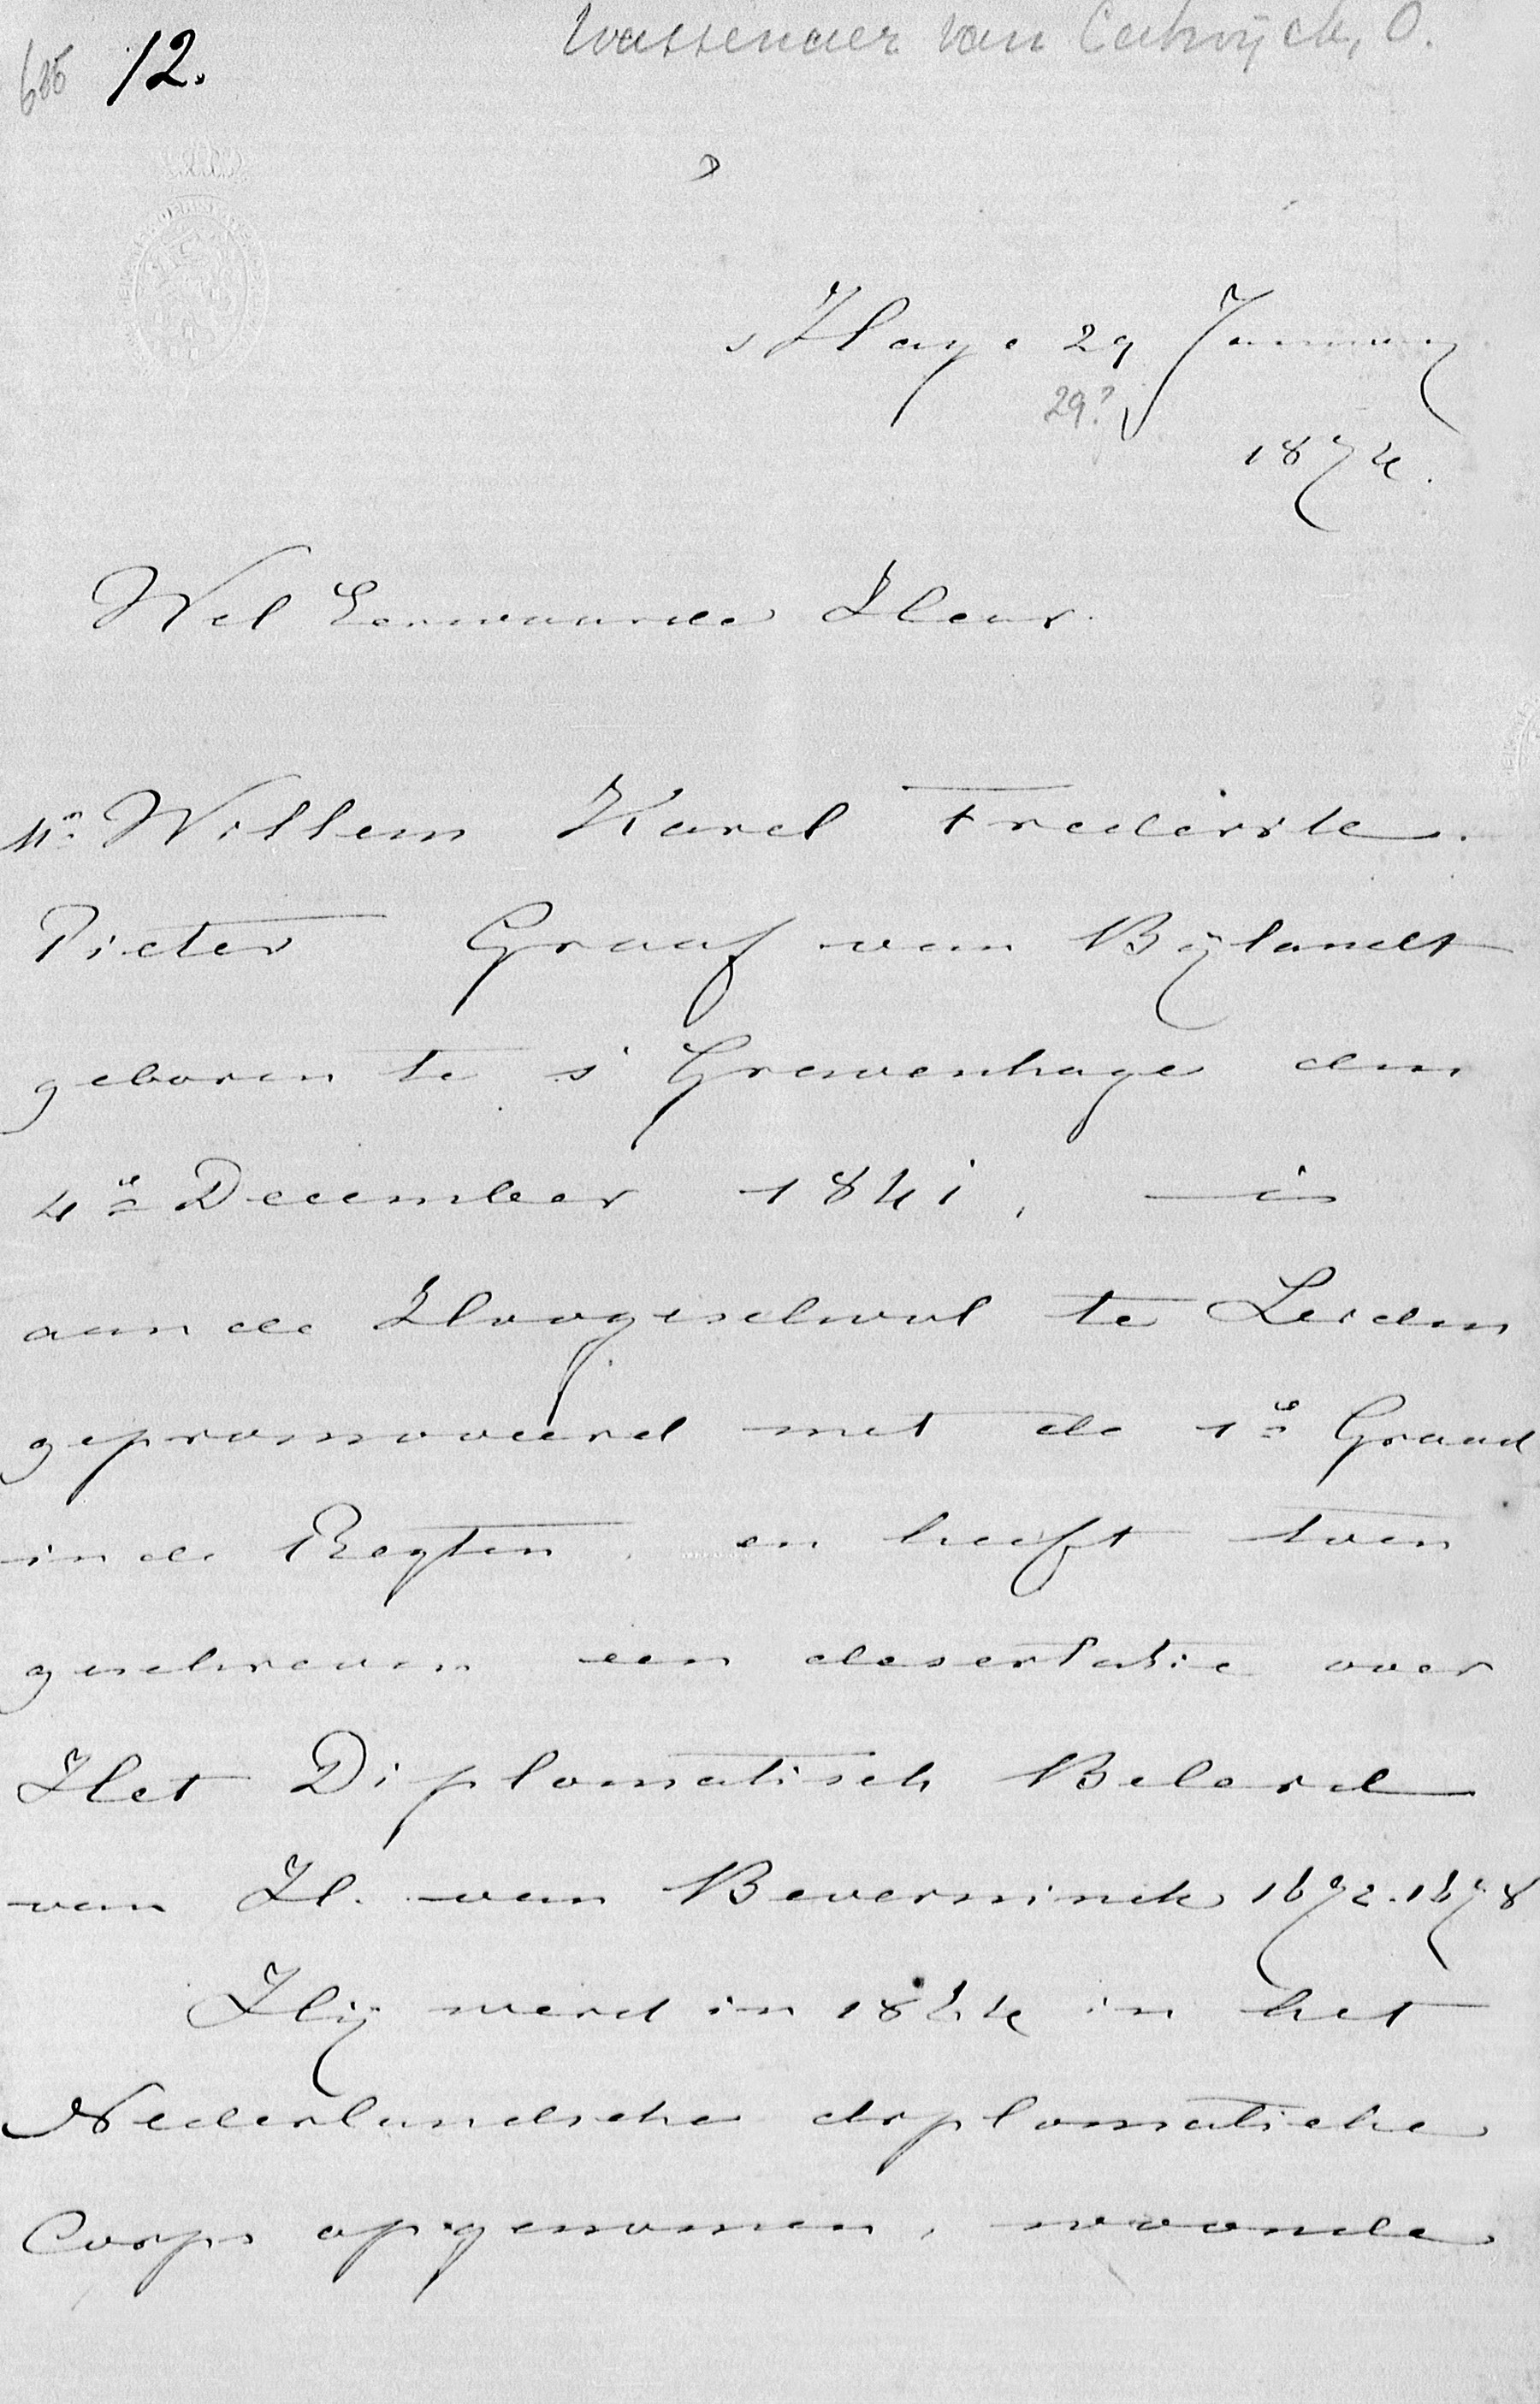 Wassenaer van Catwijck, O.
12.
s Hage 29 January
29?
1874.
Wel Eerwaarde Heer.
Mr. Willem Karel Frederik
Pieter Graaf van Bylandt
geboren te s' Gravenhage den
4e December 1841, is
aan de Hoogeschool te Leiden
gepromoveerd met de 1e Graad
in de Regten, en heeft toen
geschreven een desertatie over
Het Diplomatisch Beleid
van H. van Beverninck 1672-1678
Hij werd in 1864 in het
Nederlandsche diplomatieke
Corps opgenomen, woonde